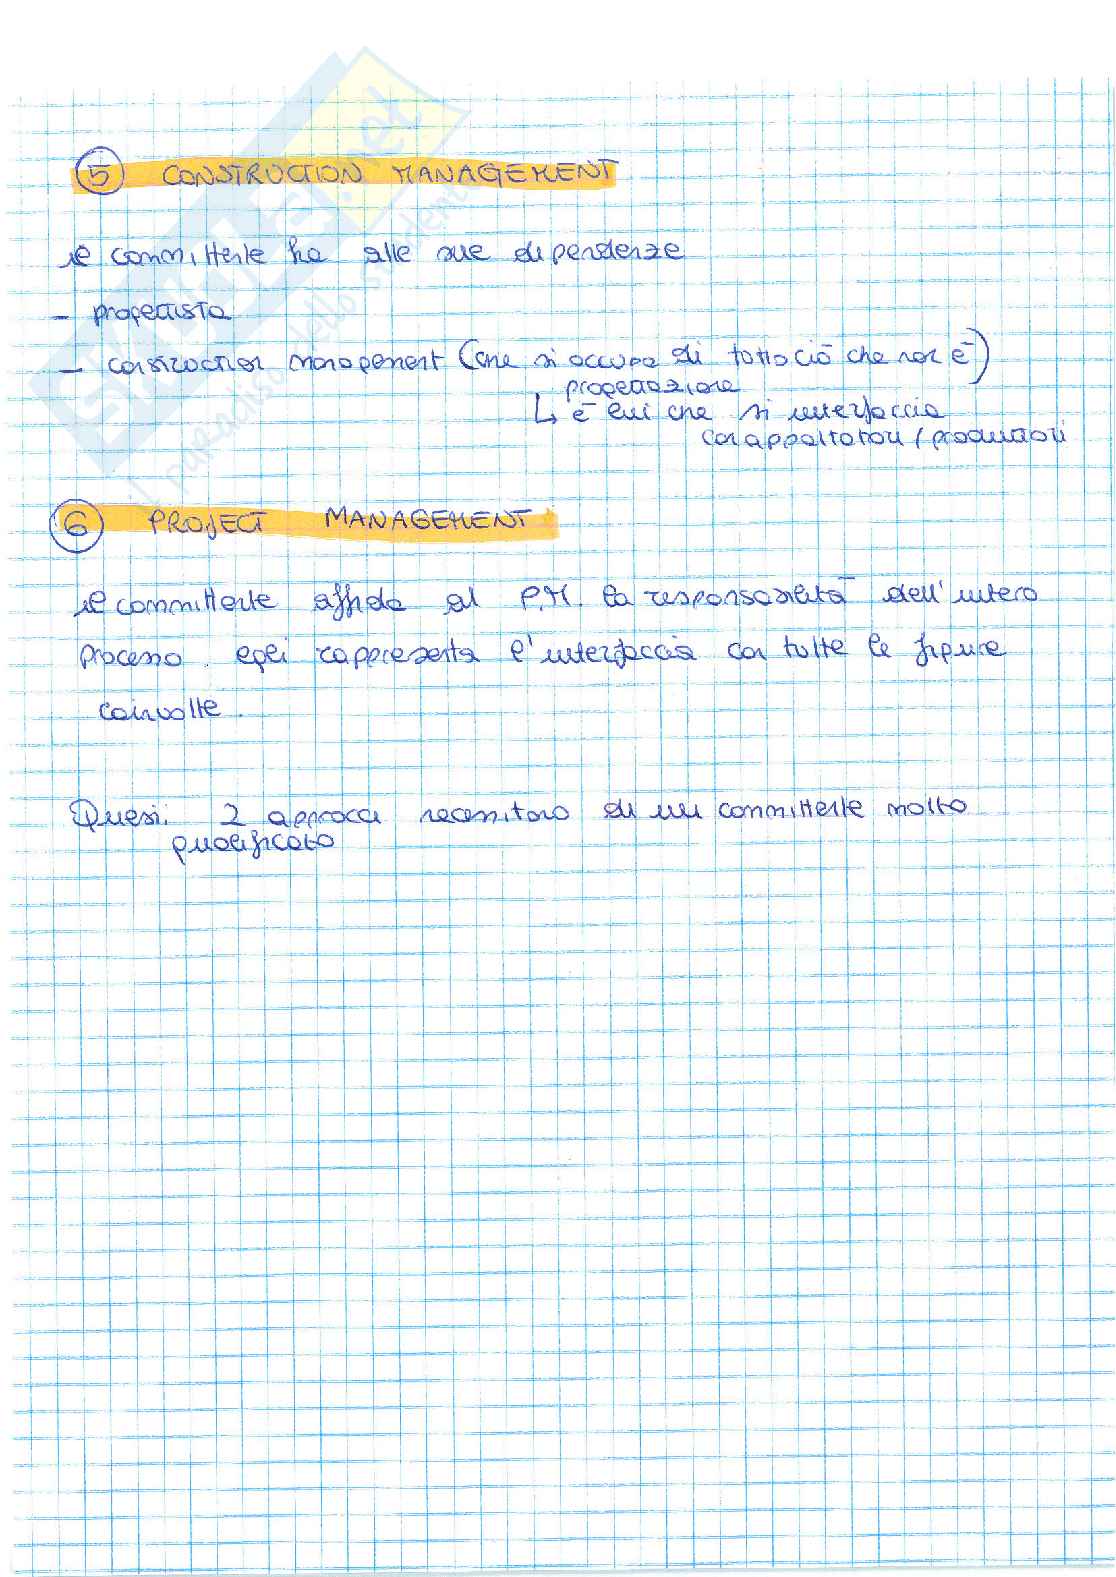 5 CONSTRUCTION MANAGEMENT
il committente ha alle sue dipendenze
- progettista
- construction management (che si occupa di tutto ciò che non è)
progettazione
↳ è lui che si interfaccia
con appaltatori / produttori
6 PROJECT MANAGEMENT
il committente affida al P.M. la responsabilità dell'intero
processo. egli rappresenta l'interfaccia con tutte le figure
coinvolte.
Questi 2 approcci necessitano di un committente molto
qualificato